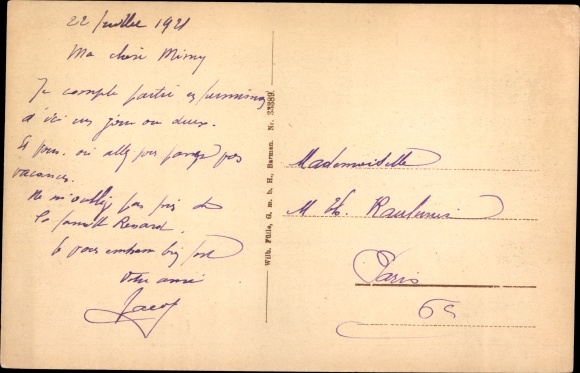 22 juillet 1921
Ma chère Mimy
Je compte partir en
d'ici un jour ou deux.
Et vous. où allez vous passer vos
vacances.
Ne m'oubliez pas près de
la famille Renard.
Je vous embrasse bien fort
Votre amie
Wilh. Fülle, G. m. b. H., Barmen. Nr. 33889
Mademoiselle
M
Paris
6e